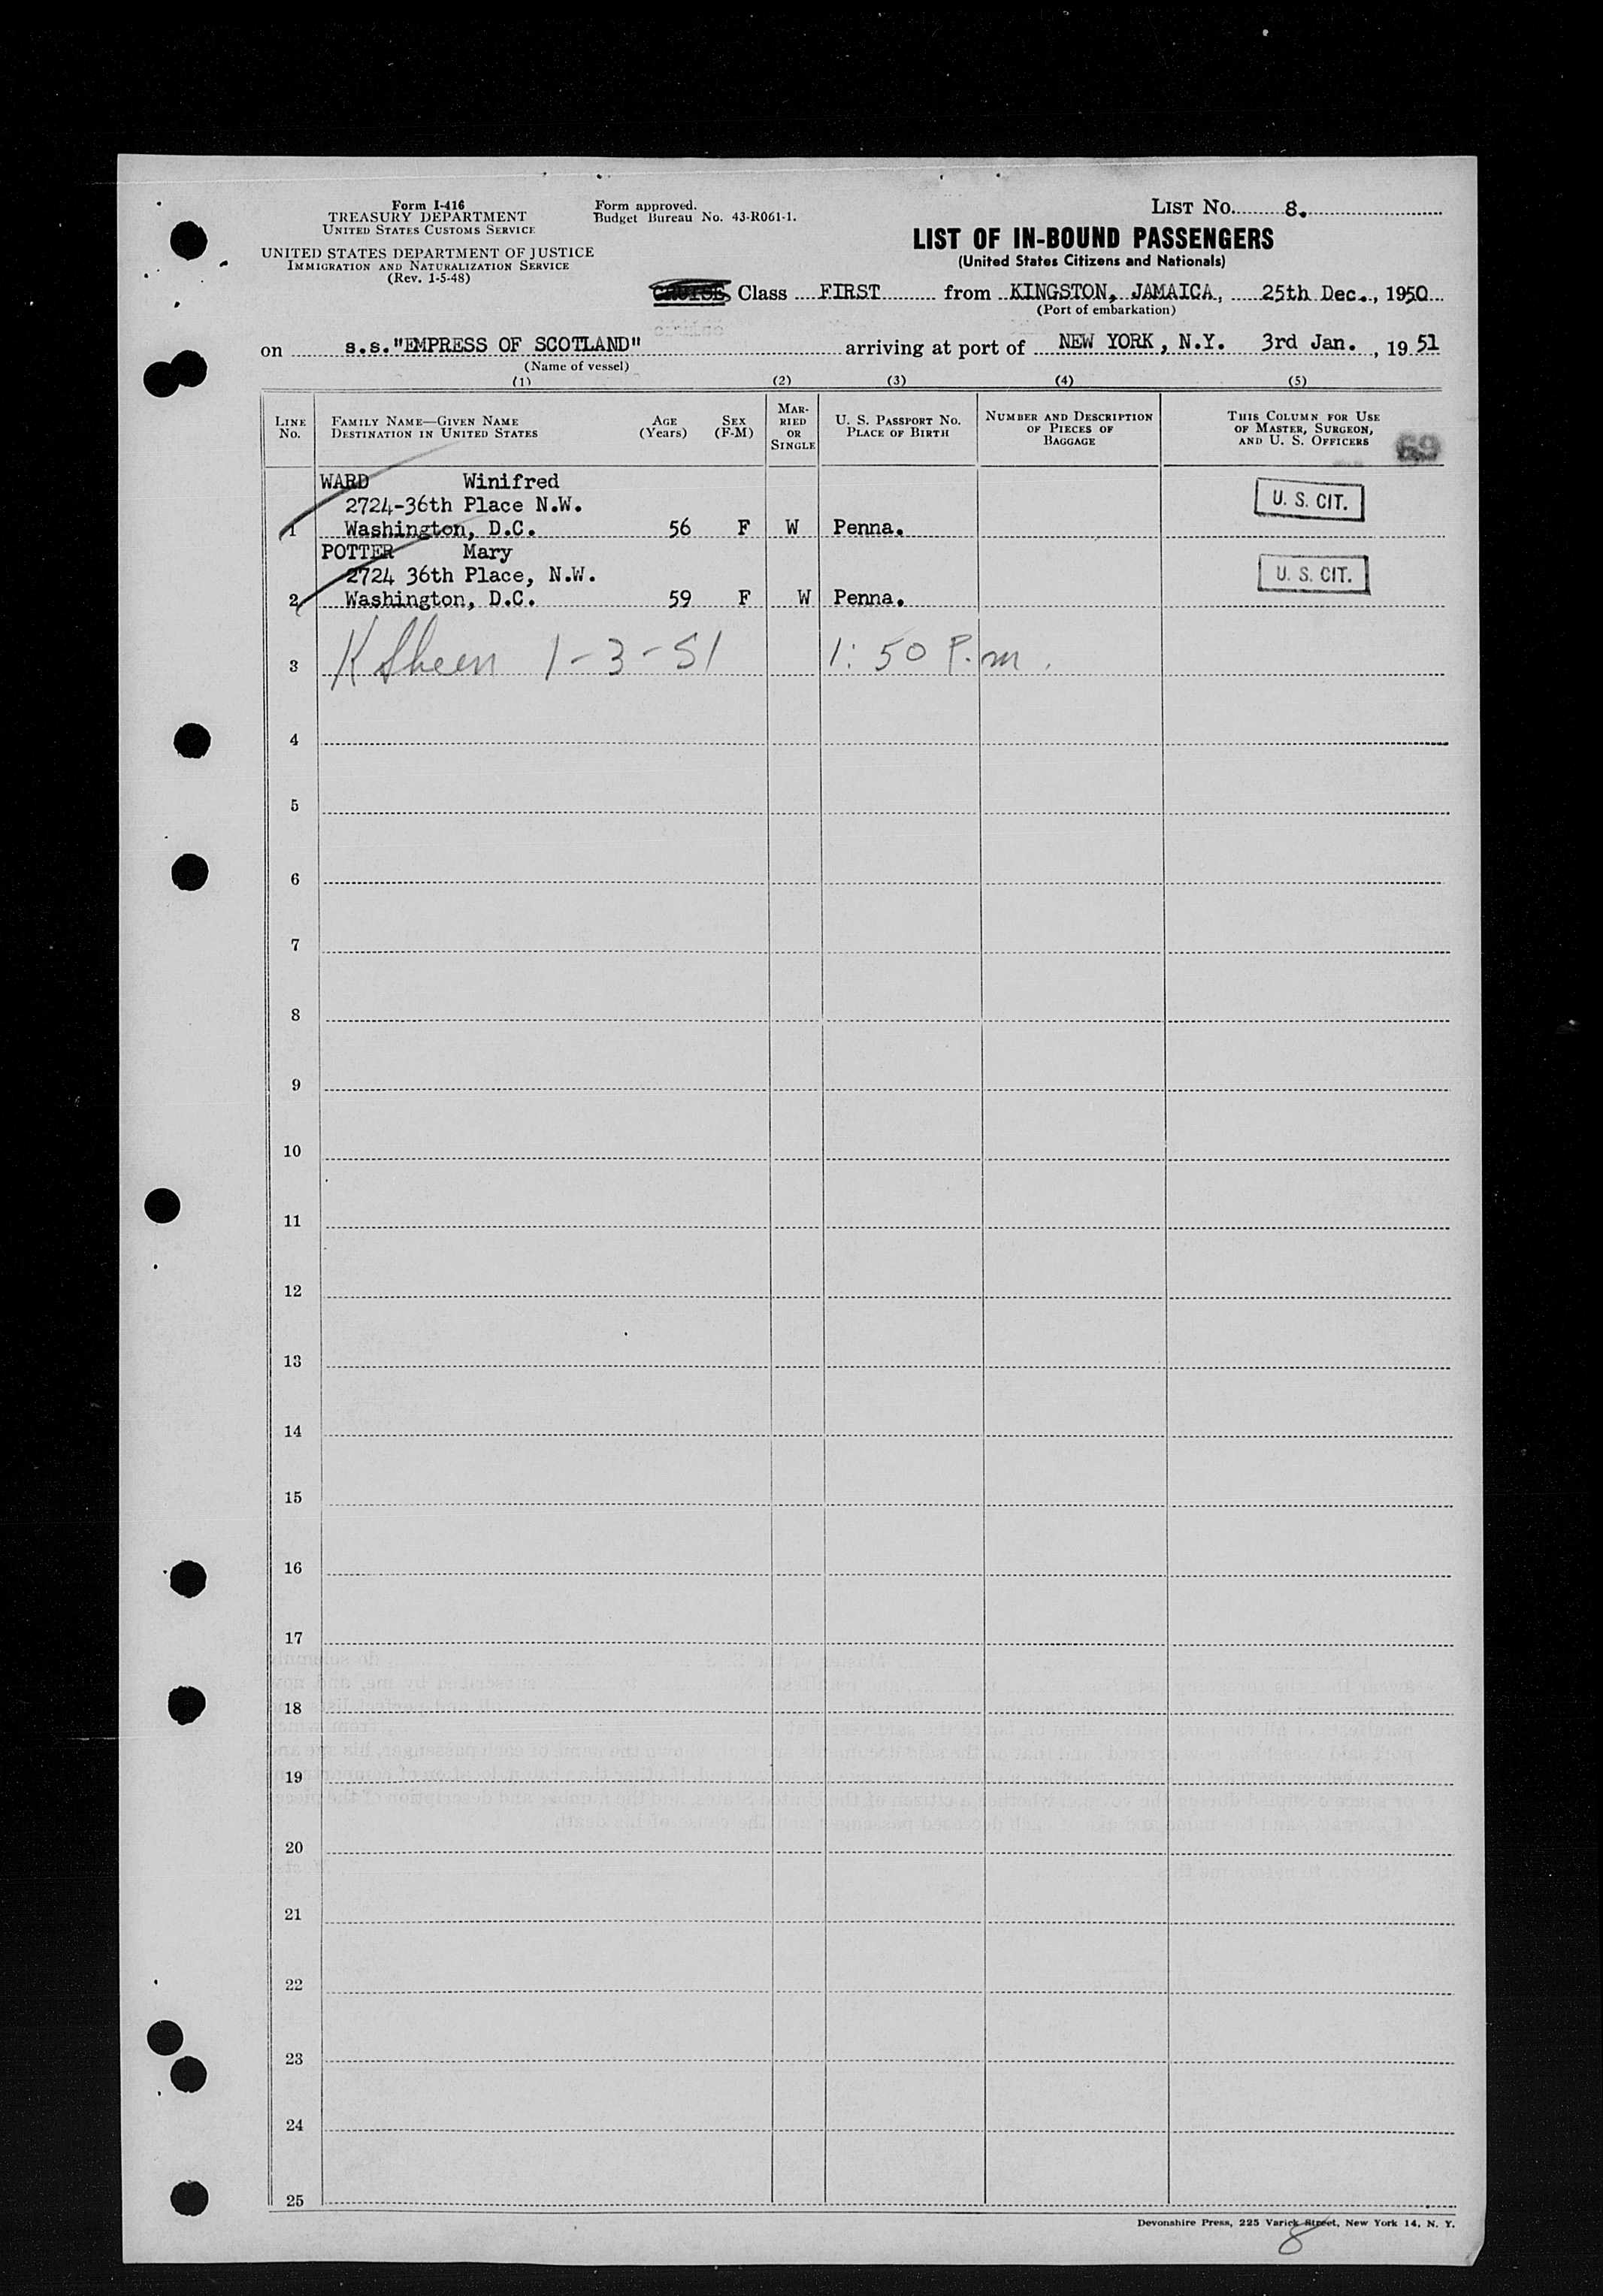 Form I-416
TREASURY DEPARTMENT
UNITED STATES CUSTOMS SERVICE
UNITED STATES DEPARTMENT OF JUSTICE
IMMIGRATION AND NATURALIZATION SERVICE
(Rev. 1-5-48)
Form approved.
Budget Bureau No. 43-R061-1.
LIST NO. 8.
LIST OF IN-BOUND PASSENGERS
(United States Citizens and Nationals)
CRUISE Class FIRST from KINGSTON, JAMAICA, 25th Dec., 1950
(Port of embarkation)
on s.s."EMPRESS OF SCOTLAND" arriving at port of NEW YORK, N.Y. 3rd Jan., 1951
(Name of vessel)
(1) (2) (3) (4) (5)
LINE NO.
FAMILY NAME—GIVEN NAME
DESTINATION IN UNITED STATES
AGE (Years)
SEX (F-M)
MARRIED OR SINGLE
U. S. PASSPORT NO.
PLACE OF BIRTH
NUMBER AND DESCRIPTION
OF PIECES OF
BAGGAGE
THIS COLUMN FOR USE
OF MASTER, SURGEON,
AND U. S. OFFICERS
69
WARD Winifred
2724-36th Place N.W.
1 Washington, D.C. 56 F W Penna. U. S. CIT.
POTTER Mary
2724 36th Place, N.W.
2 Washington, D.C. 59 F W Penna. U. S. CIT.
3 K Sheen 1-3-51 1:50 P.m.
4
5
6
7
8
9
10
11
12
13
14
15
16
17
18
19
20
21
22
23
24
25
Devonshire Press, 225 Varick Street, New York 14, N. Y.
8